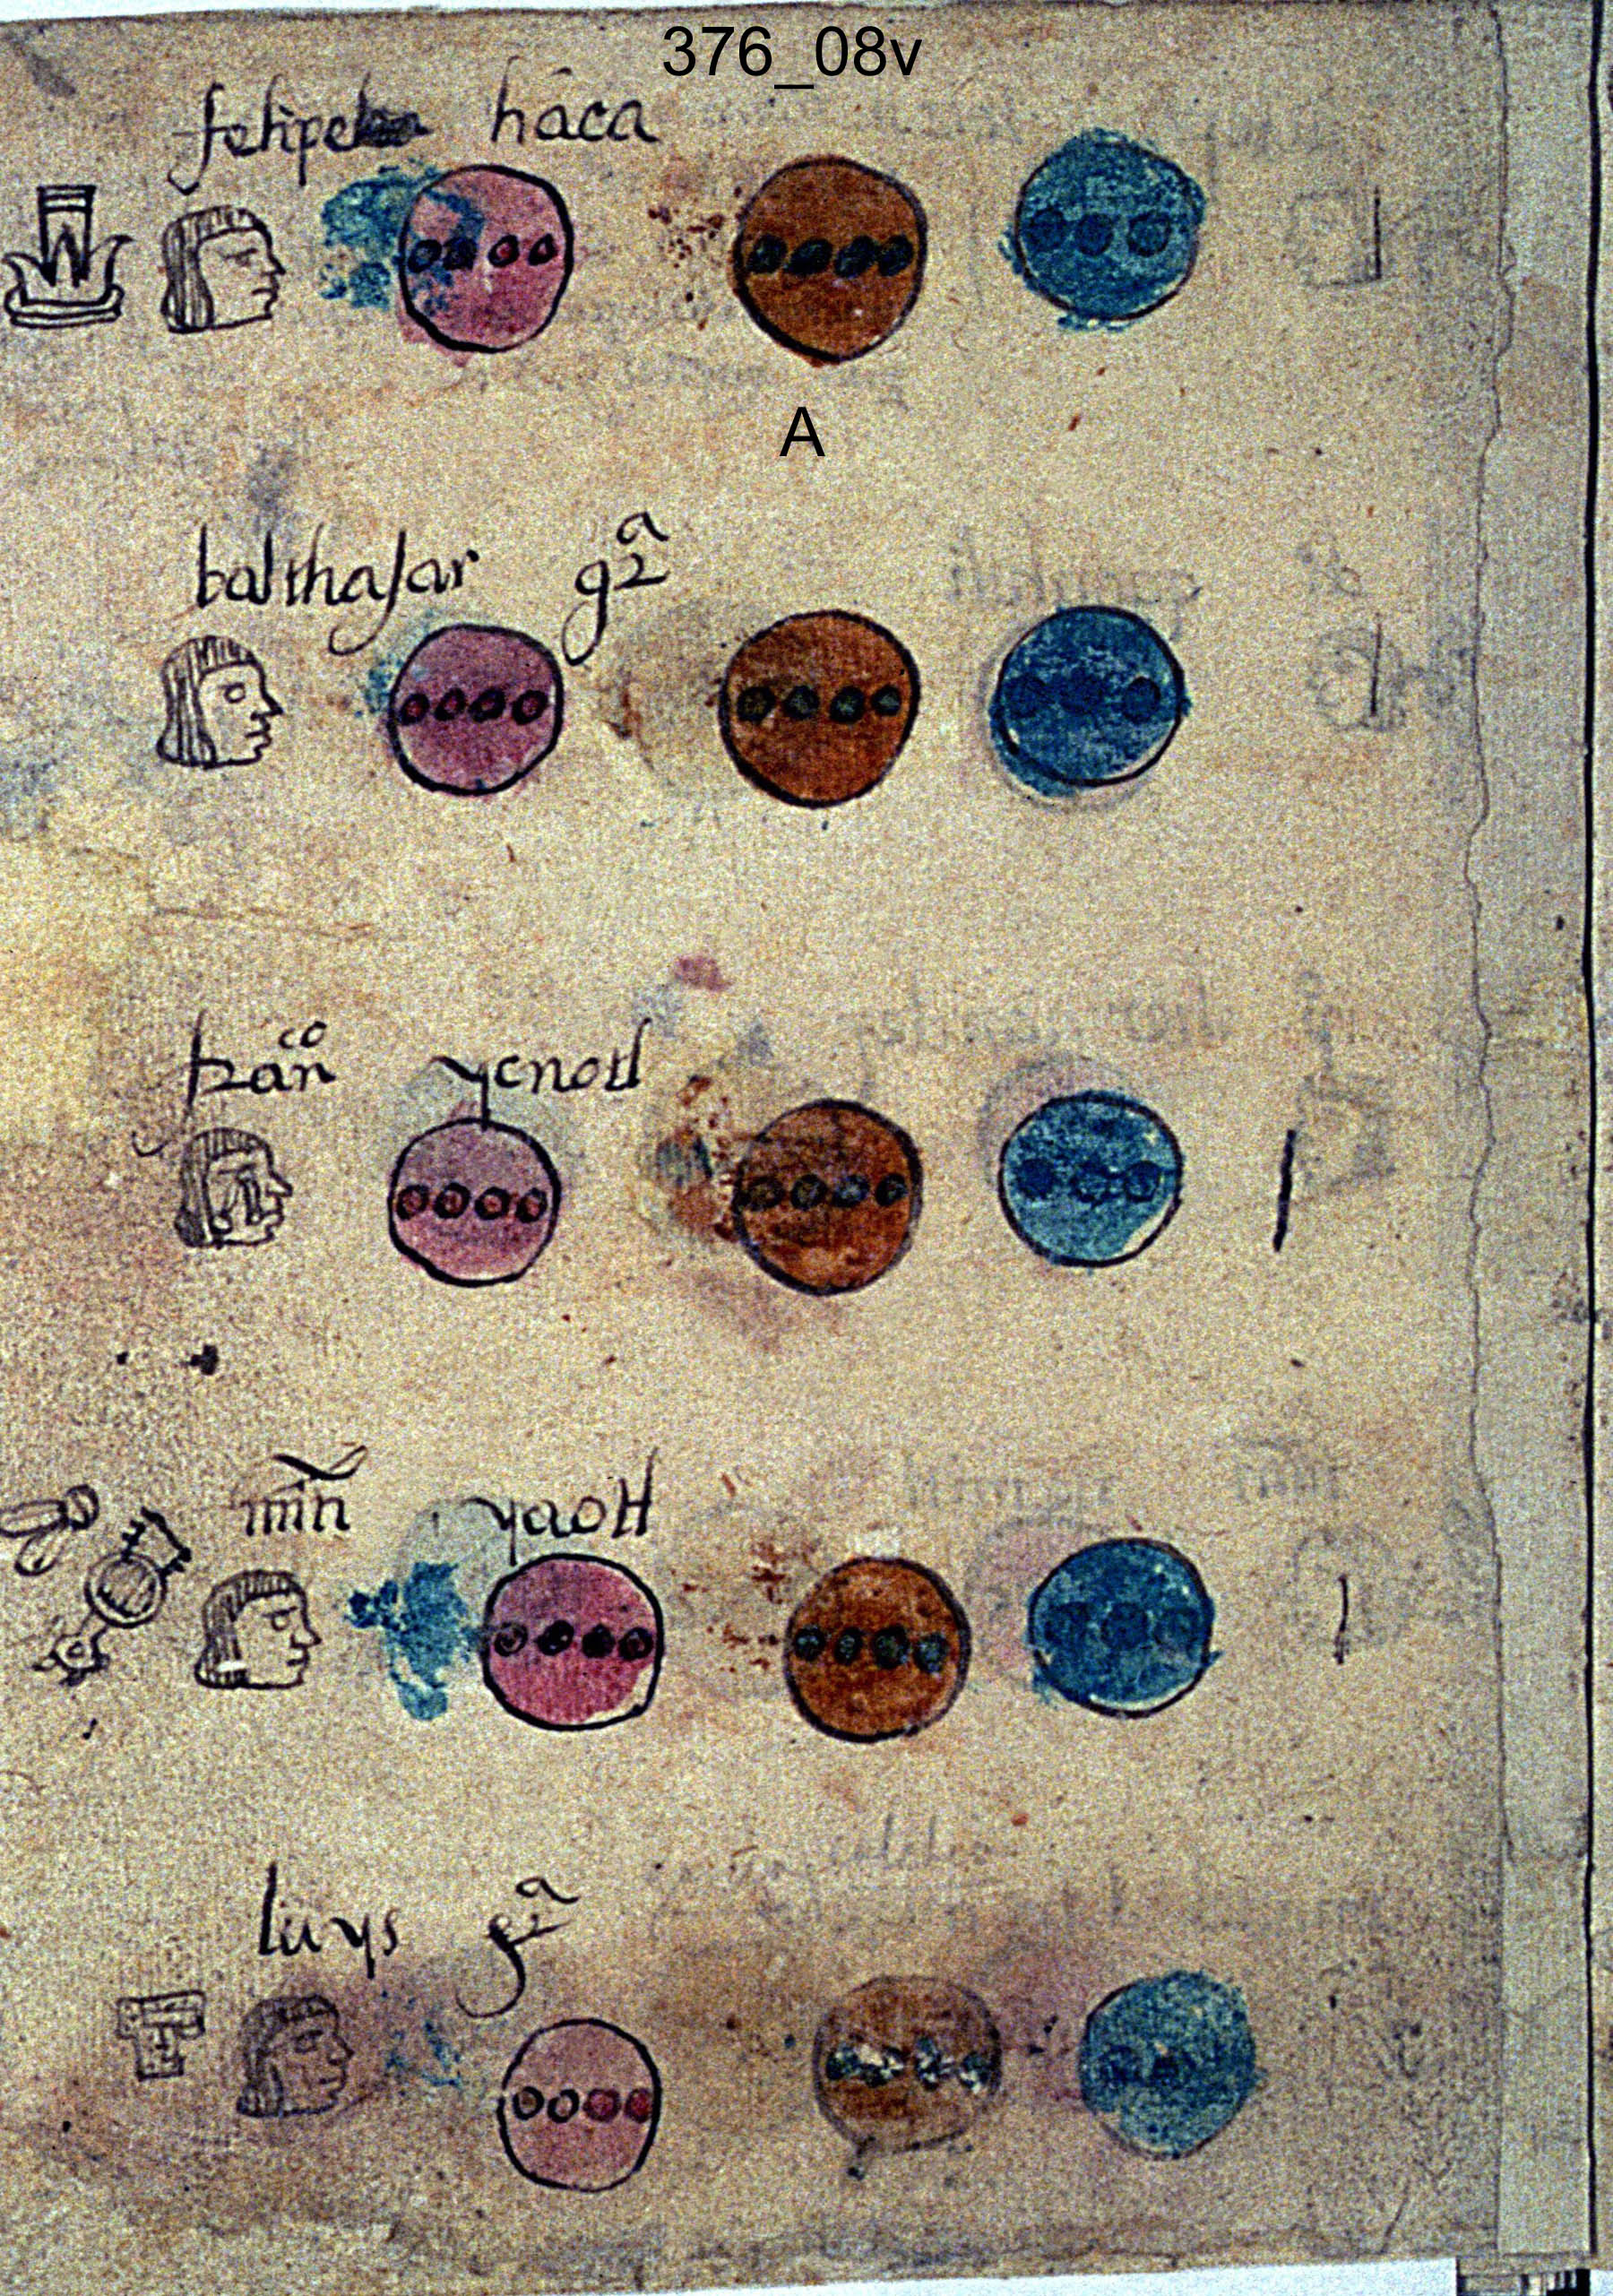 376_08v
felipe haca
A
balthasar gᵃ
franᶜᵒ ycnotl
min̄ yaotl
luys gᵃ